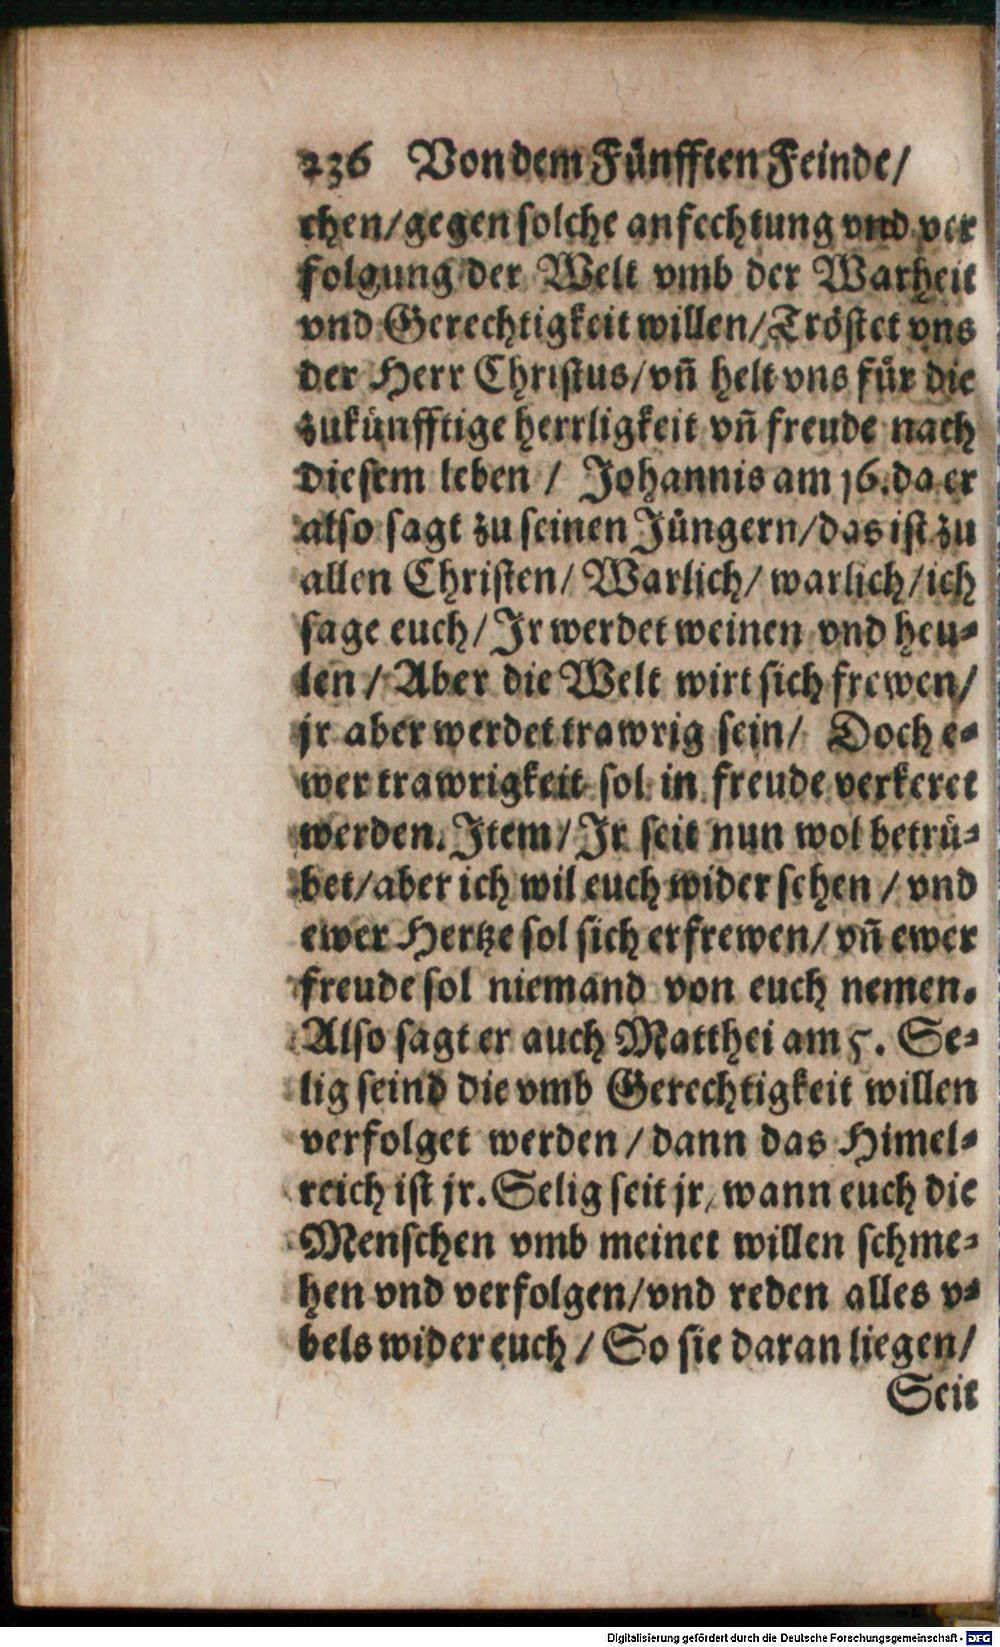 236 Von dem Fünfften Feinde/
chen/gegen solche anfechtung vnd ver
folgung der Welt vmb der Warheit
vnd Gerechtigkeit willen/Tröstet vns
der Herr Christus/vñ helt vns für die
zukünfftige herrligkeit vñ freude nach
diesem leben / Johannis am 16. da er
also sagt zu seinen Jüngern/das ist zu
allen Christen/ Warlich/ warlich/ich
sage euch/Jr werdet weinen vnd heu-
len / Aber die Welt wirt sich frewen/
jr aber werdet trawrig sein/ Doch e-
wer trawrigkeit sol in freude verkeret
werden. Item/Jr seit nun wol betrü-
bet/aber ich wil euch wider sehen / vnd
ewer Hertze sol sich erfrewen/ vñ ewer
freude sol niemand von euch nemen.
Also sagt er auch Matthei am 5. Se-
lig seind die vmb Gerechtigkeit willen
verfolget werden / dann das Himel-
reich ist jr. Selig seit jr, wann euch die
Menschen vmb meinet willen schme-
hen vnd verfolgen/vnd reden alles v-
bels wider euch / So sie daran liegen/
Seit
Digitalisierung gefördert durch die Deutsche Forschungsgemeinschaft - DFG